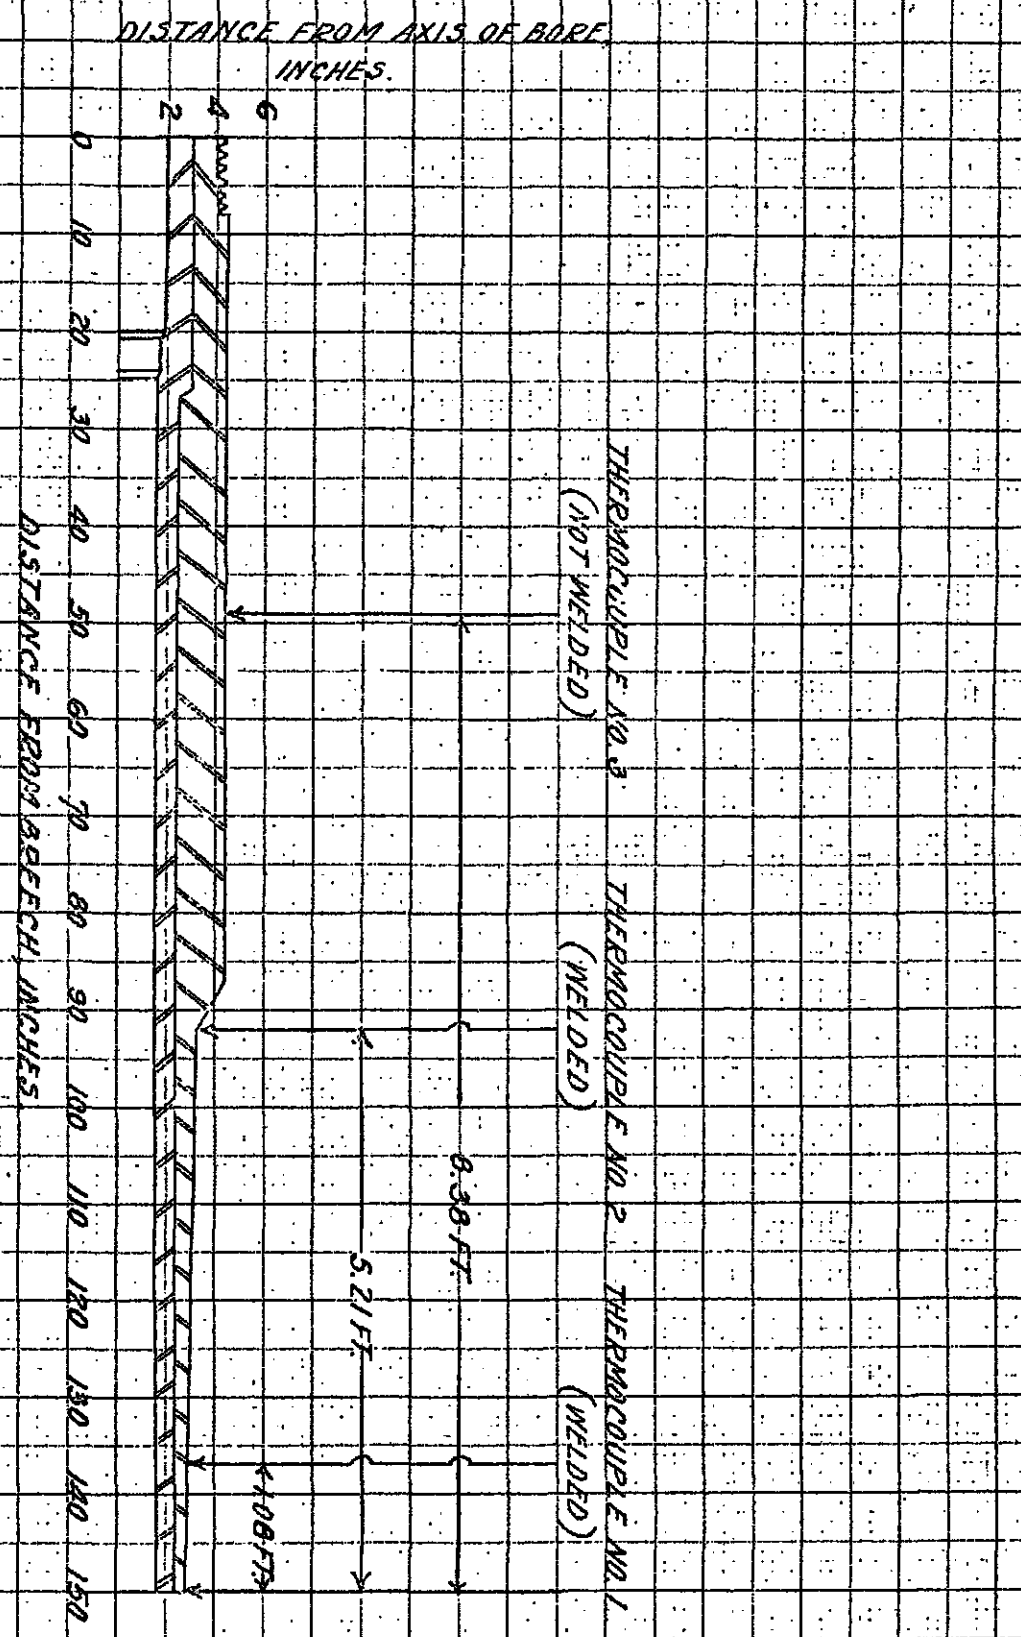 DISTANCE FROM AXIS OF BORE,
INCHES.
2 4 6
0 10 20 30 40 50 60 70 80 90 100 110 120 130 140 150
DISTANCE FROM BREECH, INCHES.
THERMOCOUPLE NO. 3
(NOT WELDED)
THERMOCOUPLE NO. 2
(WELDED)
THERMOCOUPLE NO. 1
(WELDED)
8.38 FT.
5.21 FT.
1.08 FT.